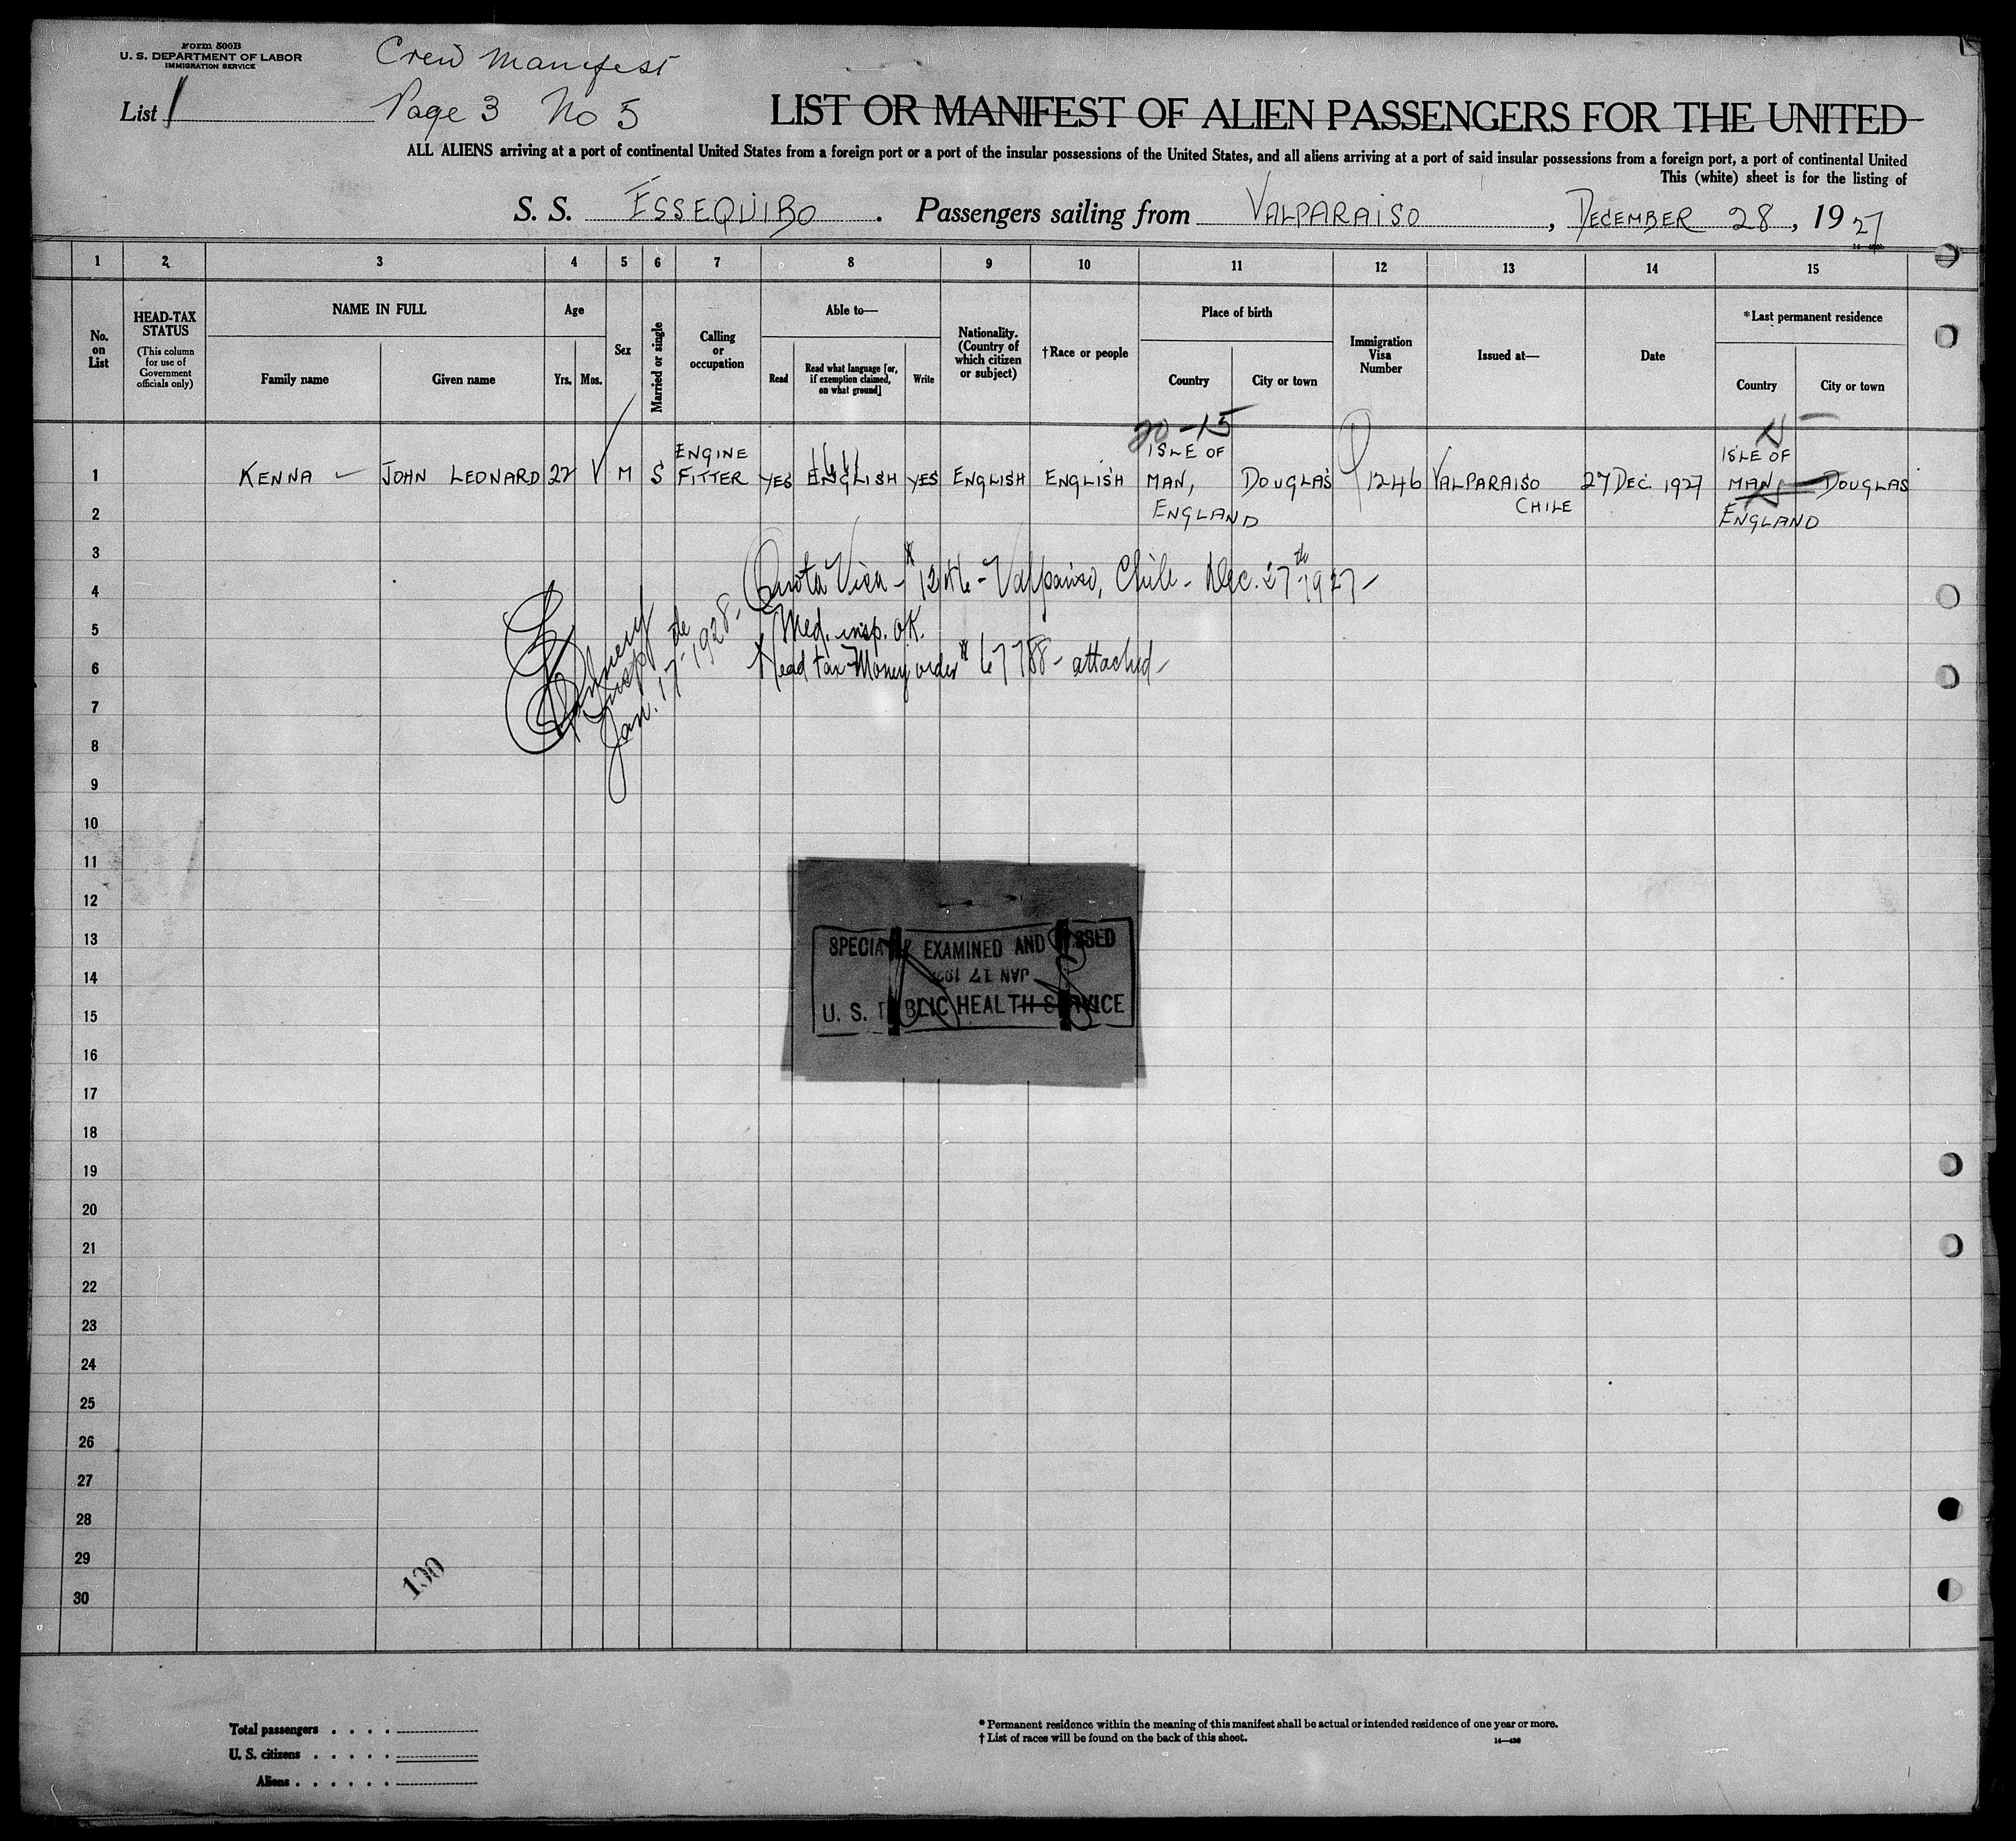 Form 500B
U. S. DEPARTMENT OF LABOR
IMMIGRATION SERVICE
Crew Manifest
List 1
Page 3 No 5
LIST OR MANIFEST OF ALIEN PASSENGERS FOR THE UNITED
ALL ALIENS arriving at a port of continental United States from a foreign port or a port of the insular possessions of the United States, and all aliens arriving at a port of said insular possessions from a foreign port, a port of continental United
This (white) sheet is for the listing of
S. S. ESSEQUIBO. Passengers sailing from VALPARAISO, DECEMBER 28, 1927
1 2 3 4 5 6 7 8 9 10 11 12 13 14 15
No. on List
HEAD-TAX STATUS
(This column for use of Government officials only)
NAME IN FULL
Family name
Given name
Age
Yrs.
Mos.
Sex
Married or single
Calling or occupation
Able to—
Read
Read what language [or, if exemption claimed, on what ground]
Write
Nationality. (Country of which citizen or subject)
†Race or people
Place of birth
Country
City or town
Immigration Visa Number
Issued at—
Date
*Last permanent residence
Country
City or town
20-15
1 KENNA JOHN LEONARD 22 M S ENGINE FITTER YES ENGLISH YES ENGLISH ENGLISH ISLE OF MAN, ENGLAND DOUGLAS 1246 VALPARAISO CHILE 27 DEC 1927 ISLE OF MAN, ENGLAND DOUGLAS
2
3
Quota Visa - # 1246 - Valparaiso, Chile - Dec. 27th 1927 -
4
Med. insp. OK.
5
Head tax Money order # 67788 - attached -
6
Insp
Jan. 17th 1928 -
7
8
9
10
11
12
13
14
15
16
17
18
19
20
21
22
23
24
25
26
27
28
29
30
EXAMINED AND
JAN 17
U. S. PUBLIC HEALTH SERVICE
100
Total passengers . . . .
U. S. citizens . . . . .
Aliens . . . . . .
* Permanent residence within the meaning of this manifest shall be actual or intended residence of one year or more.
† List of races will be found on the back of this sheet.